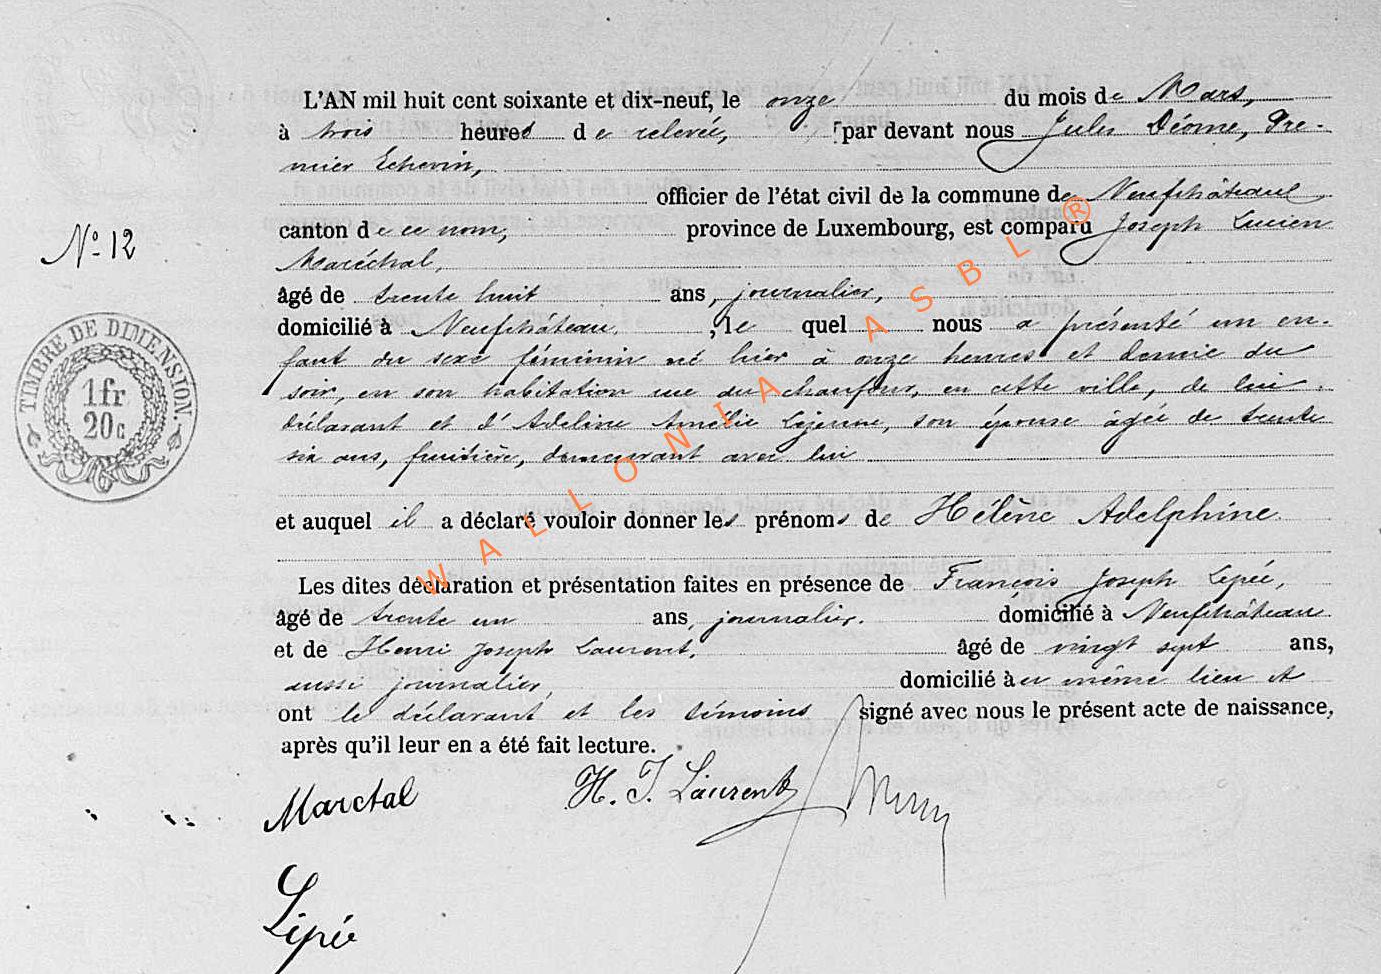 L'AN mil huit cent soixante et dix-neuf, le onze du mois de Mars,
à trois heures de relevée, par devant nous Jules Déome, Pre-
mier Echevin,
officier de l'état civil de la commune de Neufchâteau
canton de ce nom, province de Luxembourg, est comparu Joseph Lucien
N° 12
Maréchal,
âgé de trente huit ans, journalier,
domicilié à Neufchâteau, le quel nous a présenté un en-
fant du sexe féminin né hier à onze heures et demie du
soir, en son habitation rue du chaufour, en cette ville, de lui
déclarant et d'Adeline Amélie Lejeune, son épouse âgée de trente
six ans, fruitière, demeurant avec lui
TIMBRE DE DIMENSION.
1fr
20c
et auquel il a déclaré vouloir donner les prénoms de Hélène Adelphine.
Les dites déclaration et présentation faites en présence de François Joseph Lepée,
âgé de trente un ans, journalier. domicilié à Neufchâteau
et de Henri Joseph Laurent, âgé de vingt sept ans,
aussi journalier, domicilié à u même lieu et
ont le déclarant et les témoins signé avec nous le présent acte de naissance,
après qu'il leur en a été fait lecture.
Marchal
H. J. Laurent
Lépée
WALLONIA ASBL ®